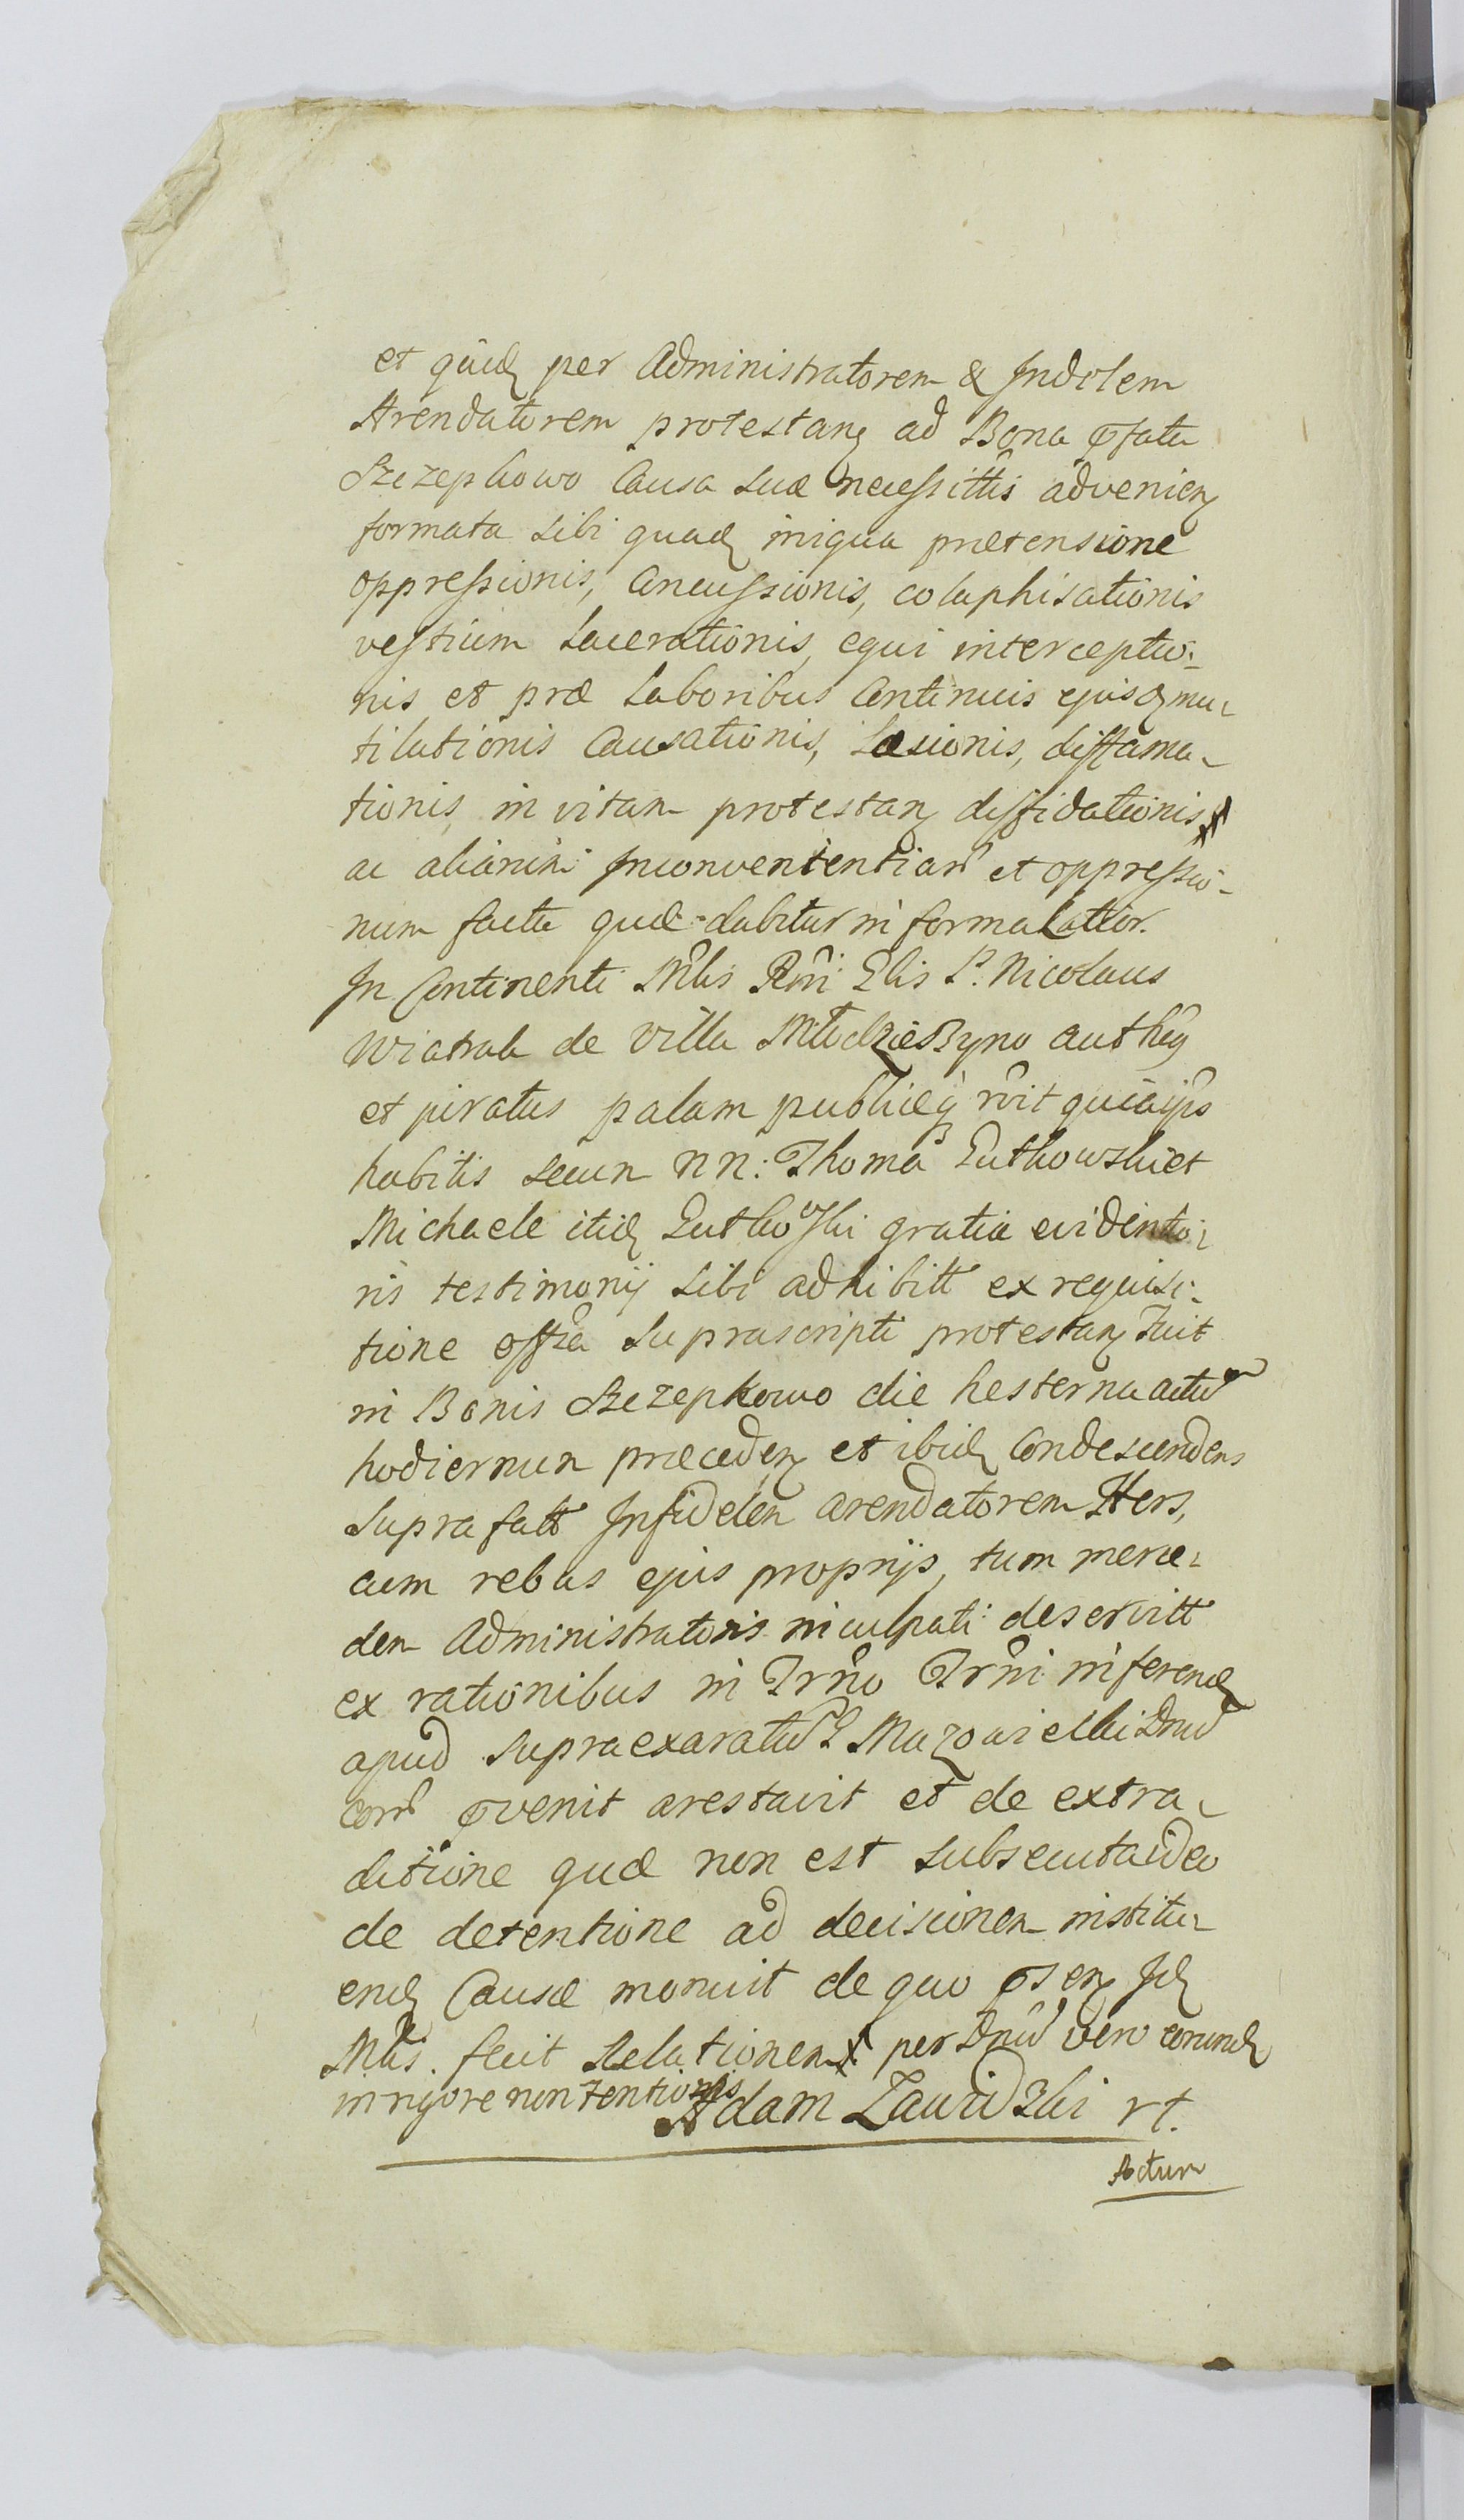 et quid per Administratorem & Indolem
Arendatorem protestanz ad Bona pfata
Szczepkowo Causa suæ necessittîs advenienz
formata sibi quad iniqua prætensione
oppressionis, Concussionis, colaphisationis
vestium Lacerationis, equi interceptio-
nis et præ Laboribus Continuis ejusqz mu-
tilationis Causationis, Læsionis, diffama-
tionis, in vitam protestanz diffidationis
ac aliarum Inconvenientiarũ et oppressio-
num facta quæ dabitur in forma Lattior.
In Continenti Mlis Rni Glis P. Nicolaus
Wiatrak de Villa Młodzieszyno authen
et juratus palam publiceq rvit quia ips
habitis secum NN: Thoma Rutkowski et
Michaele itid Rutkowski gratia evidentio-
ris testimonij sibi adhibitt ex requisi-
tione offsa Suprascripti protestanz fuit
in Bonis Szczepkowo die hesterna actũ
hodiernum præcedenz et ibid Condescendens
supra fatt Infidelem arendatorem Hers,
cum rebus ejus proprijs, tum merce-
dem Administratoris inculpati deservitt
ex rationibus in Trno Trni inferend
apud supraexaratũ G Mazowiecki Dnũ
corũ pvenit arestavit et de extra-
ditione quæ non est subsecuta ideo
de detentione ad decisionem institu-
end Causæ monuit de quo psenz Id
Mlis. fecit Relationem per Dnũ vero eorund
in rigore non Tentionis
Adam Zawidzki rt.
Actum